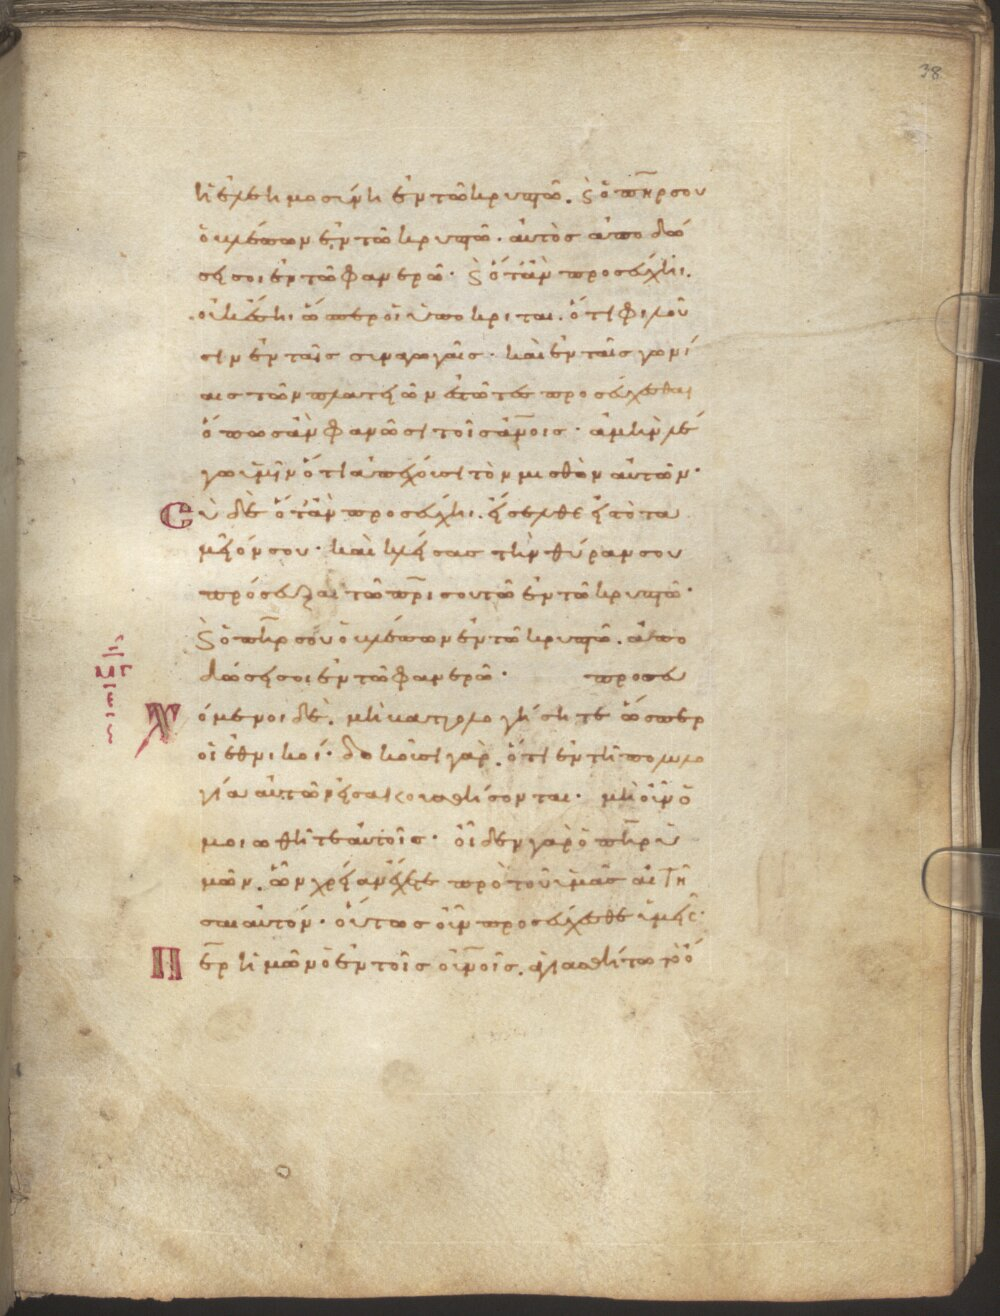 38
ἡ ἐλεημοσίνη ἐν τῶ κρυπτῶ. ϗ ὁ πηρ σου
ὁ βλέπων ἐν τῶ κρυπτῶ· αὐτὸς ἀποδώ
σει σοι ἐν τῶ φανερῶ· ϗ ὅτἂν προσεύχη.
οὐκ ἔση ὥσπερ οἱ ὑποκριται. ὅτι φιλοῦ
σιν ἐν ταῖς συναγωγαῖς· καὶ ἐν ταῖς γωνί
αις τῶν πλατειῶν ἑστῶτες προσεύχεσθαι
ὅπως ἀν φανῶσι τοῖς ἀνοις· ἀμὴν λέ
γω ὑμῖν ὅτι ἀπέχουσι τὸν μισθὸν αὐτῶν·
Σὺ δὲ ὅτἂν προσεύχη. εἴσελθε εἰς τὸ τα
μεῖόν σου· καὶ κλείσας τὴν θύραν σου
πρόσευξαι τῶ πρι σου τῶ ἐν τῶ κρυπτῶ·
ϗ ὁ πηρ σου ὁ βλέπων ἐν τῶ κρυπτῶ. ἀπο
δώσει σοι ἐν τῶ φανερῶ· προσευ
Χόμενοι δὲ. μὴ βατολογήσητε ὥσπερ
οἱ ἐθνικοί· δοκοῦσι γὰρ. ὅτι ἐν τῆ πολυλο
γία αὐτῶν εἰσακουσθήσονται· μὴ οὖν ὁ
μοιωθῆτε αὐτοῖς· οἶδεν γαρ ὁ πηρ ὑ
μῶν. ὧν χρείαν ἔχετε πρὸ τοῦ ὑμᾶς αἰτῆ
σαι αὐτόν· οὕτως οὖν προσεύχεσθε ὑμεῖς·
Περ ἡμῶν ὁ ἐν τοῖς οὐνοῖς. ἁγιασθήτω τὸ ὄ